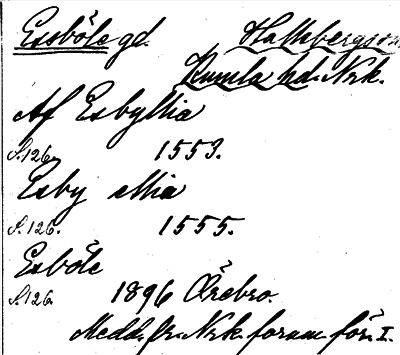 Essböle gd. Hallsbergs sn
Kumla hd. Nrk.
Af Esbyllia
S. 126. 1553.
Esby ellia
S. 126. 1555.
Esböle
S. 126. 1896 Örebro.
Medd. fr. Nrk. fornm. för. I.